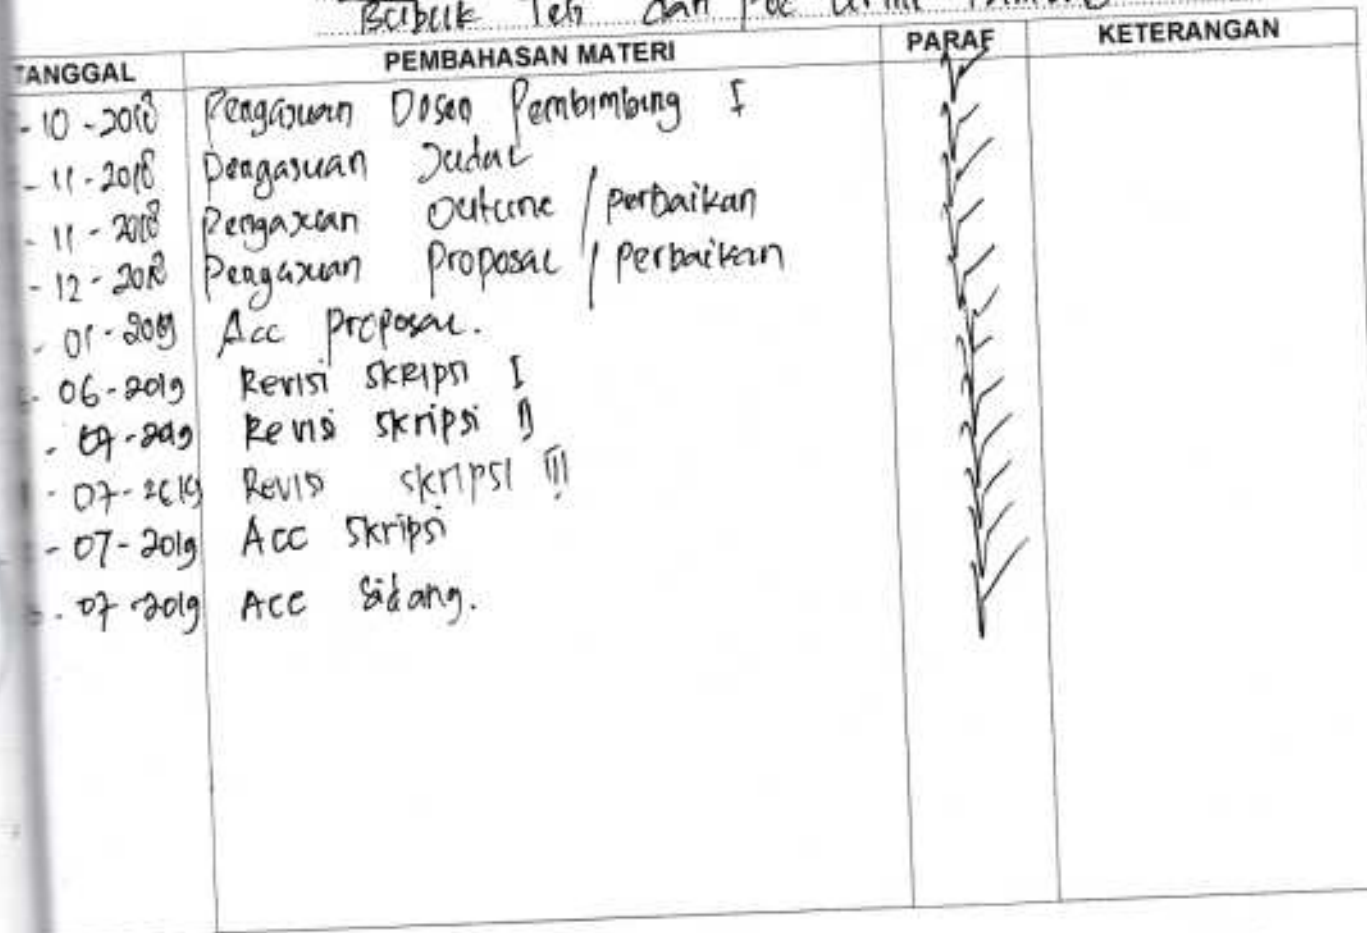 Bubuk Teh dan poc urine
TANGGAL PEMBAHASAN MATERI PARAF KETERANGAN
- 10 - 2018 Pengajuan Dosen Pembimbing I
- 11 - 2018 Pengajuan Judul
- 11 - 2018 Pengajuan outline / perbaikan
- 12 - 2018 Pengajuan Proposal / perbaikan
- 01 - 2019 Acc proposal.
- 06 - 2019 Revisi skripsi I
- 07 - 2019 Revisi skripsi II
- 07 - 2019 Revisi skripsi III
- 07 - 2019 Acc skripsi
- 07 - 2019 Acc Sidang.